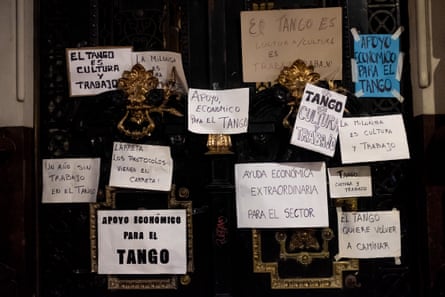 EL TANGO
ES
CULTURA Y
TRABAJO
LA MILONGA
ES CULTURA
Y TRABAJO
EL TANGO ES
CULTURA/CULTURA
ES
TRABAJO/TRABAJO
APOYO
ECONÓMICO
PARA EL
TANGO
APOYO ECONÓMICO
PARA EL
TANGO
TANGO
ES
CULTURA
Y
TRABAJO
LA MILONGA
ES CULTURA Y
TRABAJO
UN AÑO SIN
TRABAJO
EN EL TANGO
LARRETA
LOS PROTOCOLOS
VIENEN EN
CARRETA!
AYUDA ECONÓMICA
EXTRAORDINARIA
PARA EL SECTOR
TANGO
CULTURA Y
TRABAJO
APOYO ECONÓMICO
PARA EL
TANGO
EL TANGO
QUIERE VOLVER
A CAMINAR